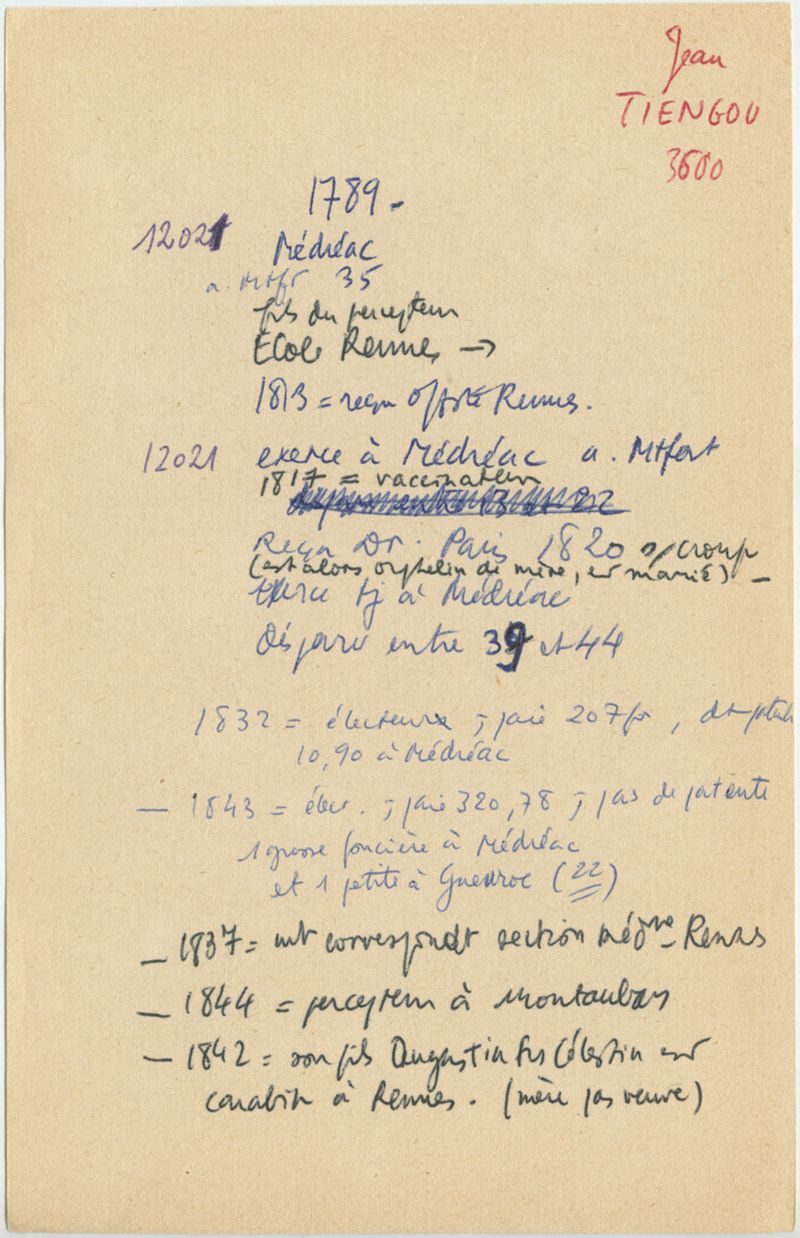 Jean
TIENGOU
3600
1789.
12021 Médréac
a. Mtfr 35
fils du percepteur
Ecole Rennes →
1813 = reçu Off Sté Rennes.
12021 exerce à Médréac a. Mtfort
1817 = vaccinateur
Reçu Dr. Paris 1820 s/croup
(est alors orphelin de mère, et marié) _
Exerce tj à Médréac
Disparu entre 39 et 44
1832 = électeur ; paie 207 fr, dt patente
10,90 à Médréac
— 1843 = élec. ; paie 320,78 ; pas de patente
1 grosse foncière à Médréac
et 1 petite à Guenroc (22)
— 1837 = mb correspondt section médre Rennes
— 1844 = percepteur à Montauban
— 1842 = son fils Augustin Frs Célestin est
carabin à Rennes. (mère pas veuve)